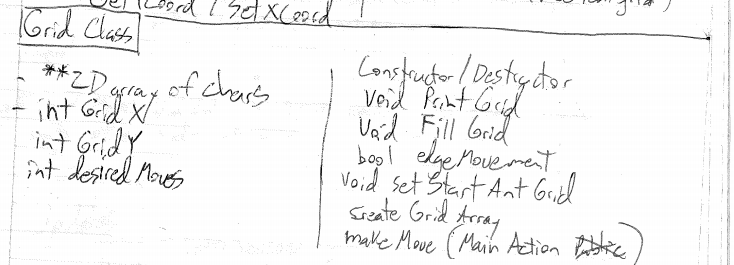 Coord / Set X Coord
Grid Class
- **2D array of chars
- int Grid X
int Grid Y
int desired Moves
Constructor/Destructor
Void Print Grid
Void Fill Grid
bool edge Movement
Void set Start Ant Grid
create Grid Array
make Move (Main Action Public)